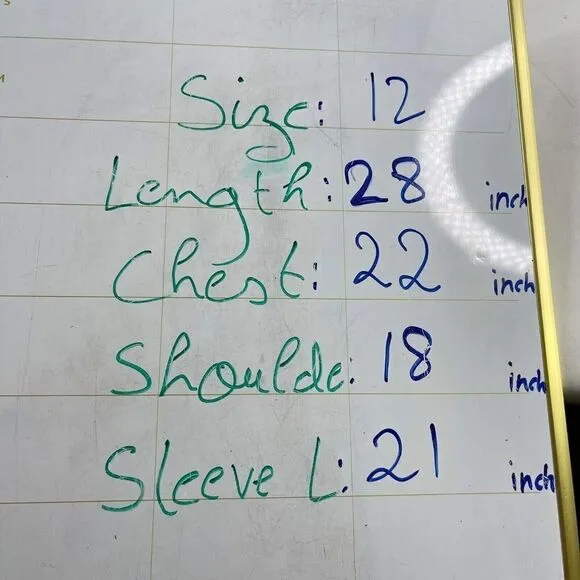 Size: 12
Length: 28 inch
Chest: 22 inch
Shoulde: 18 inch
Sleeve L: 21 inch